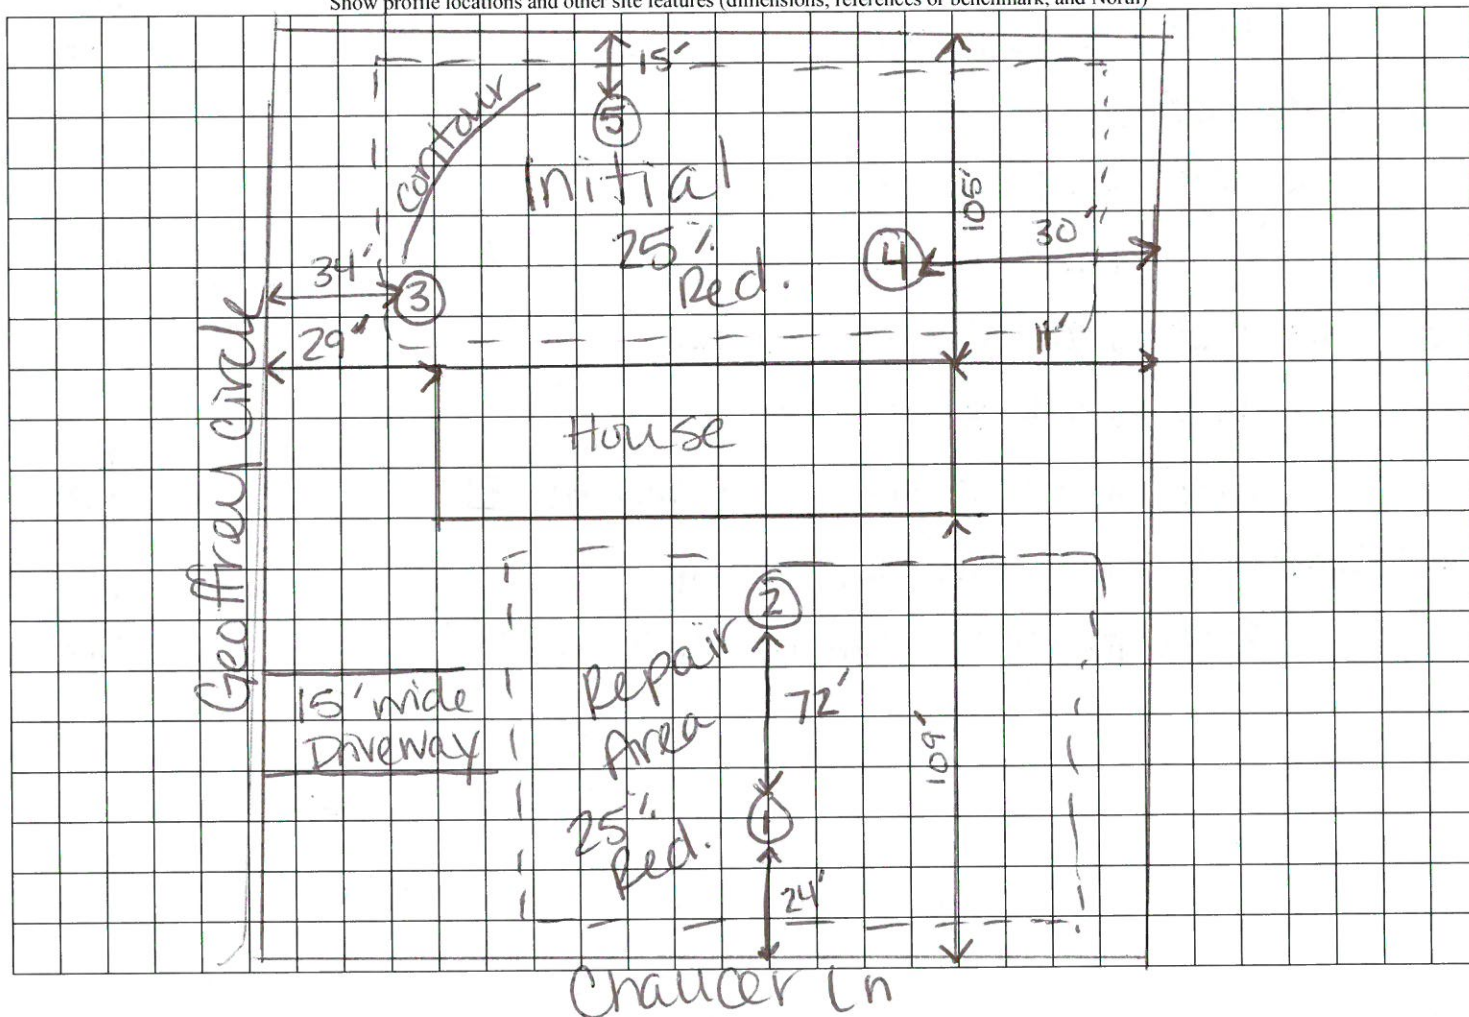 Show profile locations and other site features (dimensions, references or benchmark, and North)
15'
contour
5
Initial
25%
Red.
105'
30"
4
34'
3
29"
11'
House
Geoffrey Circle
2
Repair
Area
72'
15' wide
Driveway
109'
25%
Red.
1
24'
Chaucer Ln